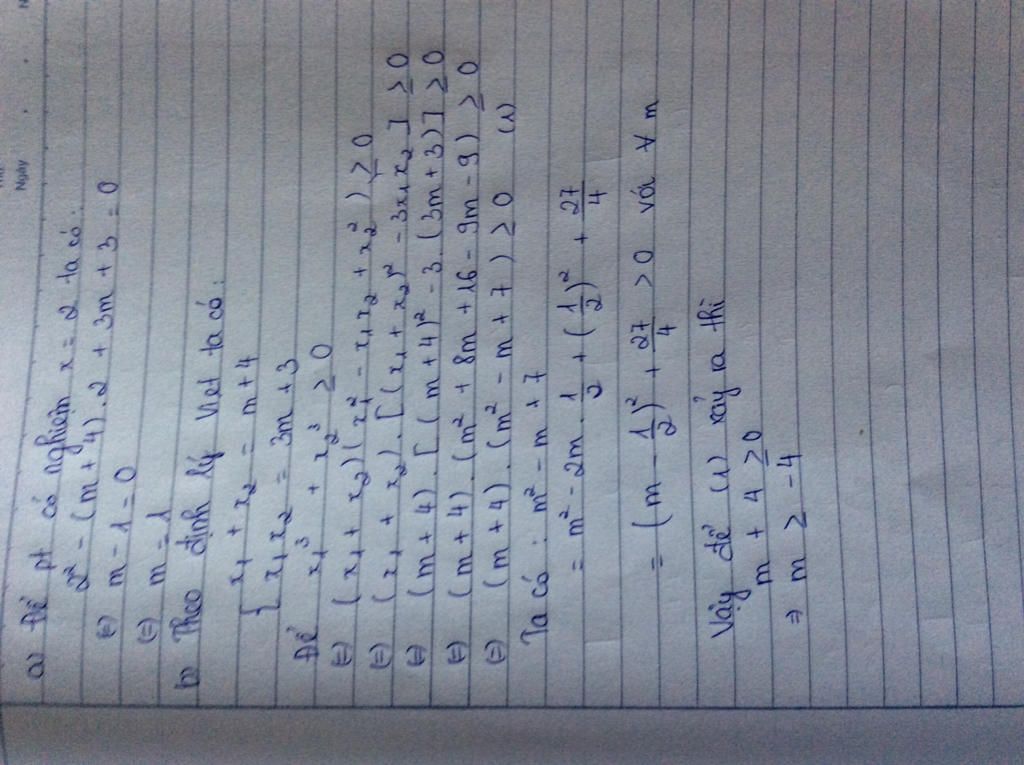 Ngày
a) Để pt có nghiệm x = 2 ta có:
2² - (m + 4).2 + 3m + 3 = 0
(=) m - 1 = 0
(=) m = 1
b) Theo định lý Viet ta có:
{ x₁ + x₂ = m + 4
x₁x₂ = 3m + 3
Để x₁³ + x₂³ ≥ 0
(=) (x₁ + x₂)(x₁² - x₁x₂ + x₂²) ≥ 0
(=) (x₁ + x₂).[(x₁ + x₂)² - 3x₁x₂] ≥ 0
(=) (m + 4).[(m + 4)² - 3.(3m + 3)] ≥ 0
(=) (m + 4).(m² + 8m + 16 - 9m - 9) ≥ 0
(=) (m + 4).(m² - m + 7) ≥ 0 (1)
Ta có: m² - m + 7
= m² - 2m.1/2 + (1/2)² + 27/4
= (m - 1/2)² + 27/4 > 0 với ∀ m
Vậy để (1) xảy ra thì
m + 4 ≥ 0
⇒ m ≥ -4